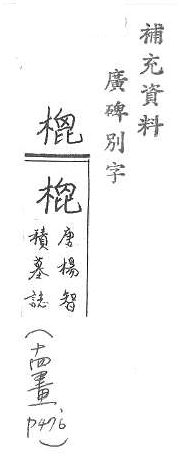 補充資料
廣碑別字
唐楊智
積墓誌
(十四畫、p476)